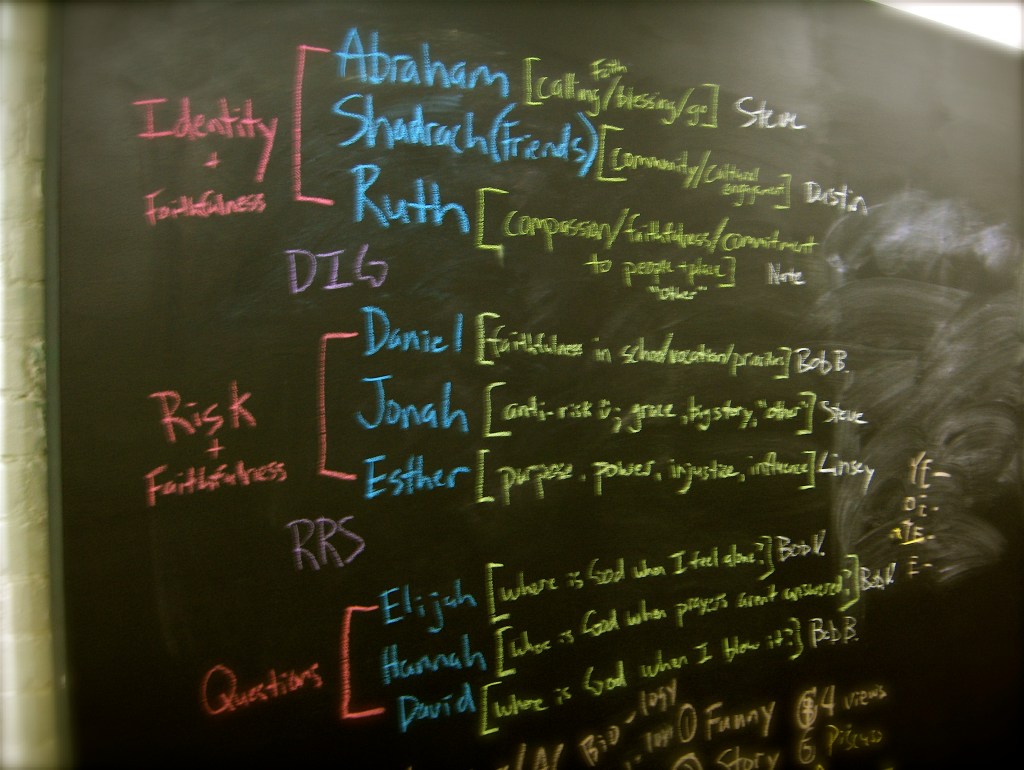 Identity
+
Faithfulness
Abraham [calling/blessing/go] Steve
Faith
Shadrach (friends) [community/cultural engagement] Dustin
Ruth [compassion/faithfulness/commitment
to people + place] Nate
"other"
DIG
Risk
+
Faithfulness
Daniel [faithfulness in school/vocation/] Bob B.
Jonah [anti-risk ; grace, big story, "other"] Steve
Esther [purpose, power, injustice, influence] Linsey
RRS
Questions
Elijah [Where is God when I feel alone?] Bob V.
Hannah [Where is God when prayers aren't answered?] Bob V.
David [Where is God when I blow it?] Bob B.
YE-
DI-
E-
Bio-logy
① Funny
Story
4 views
6 Discuss